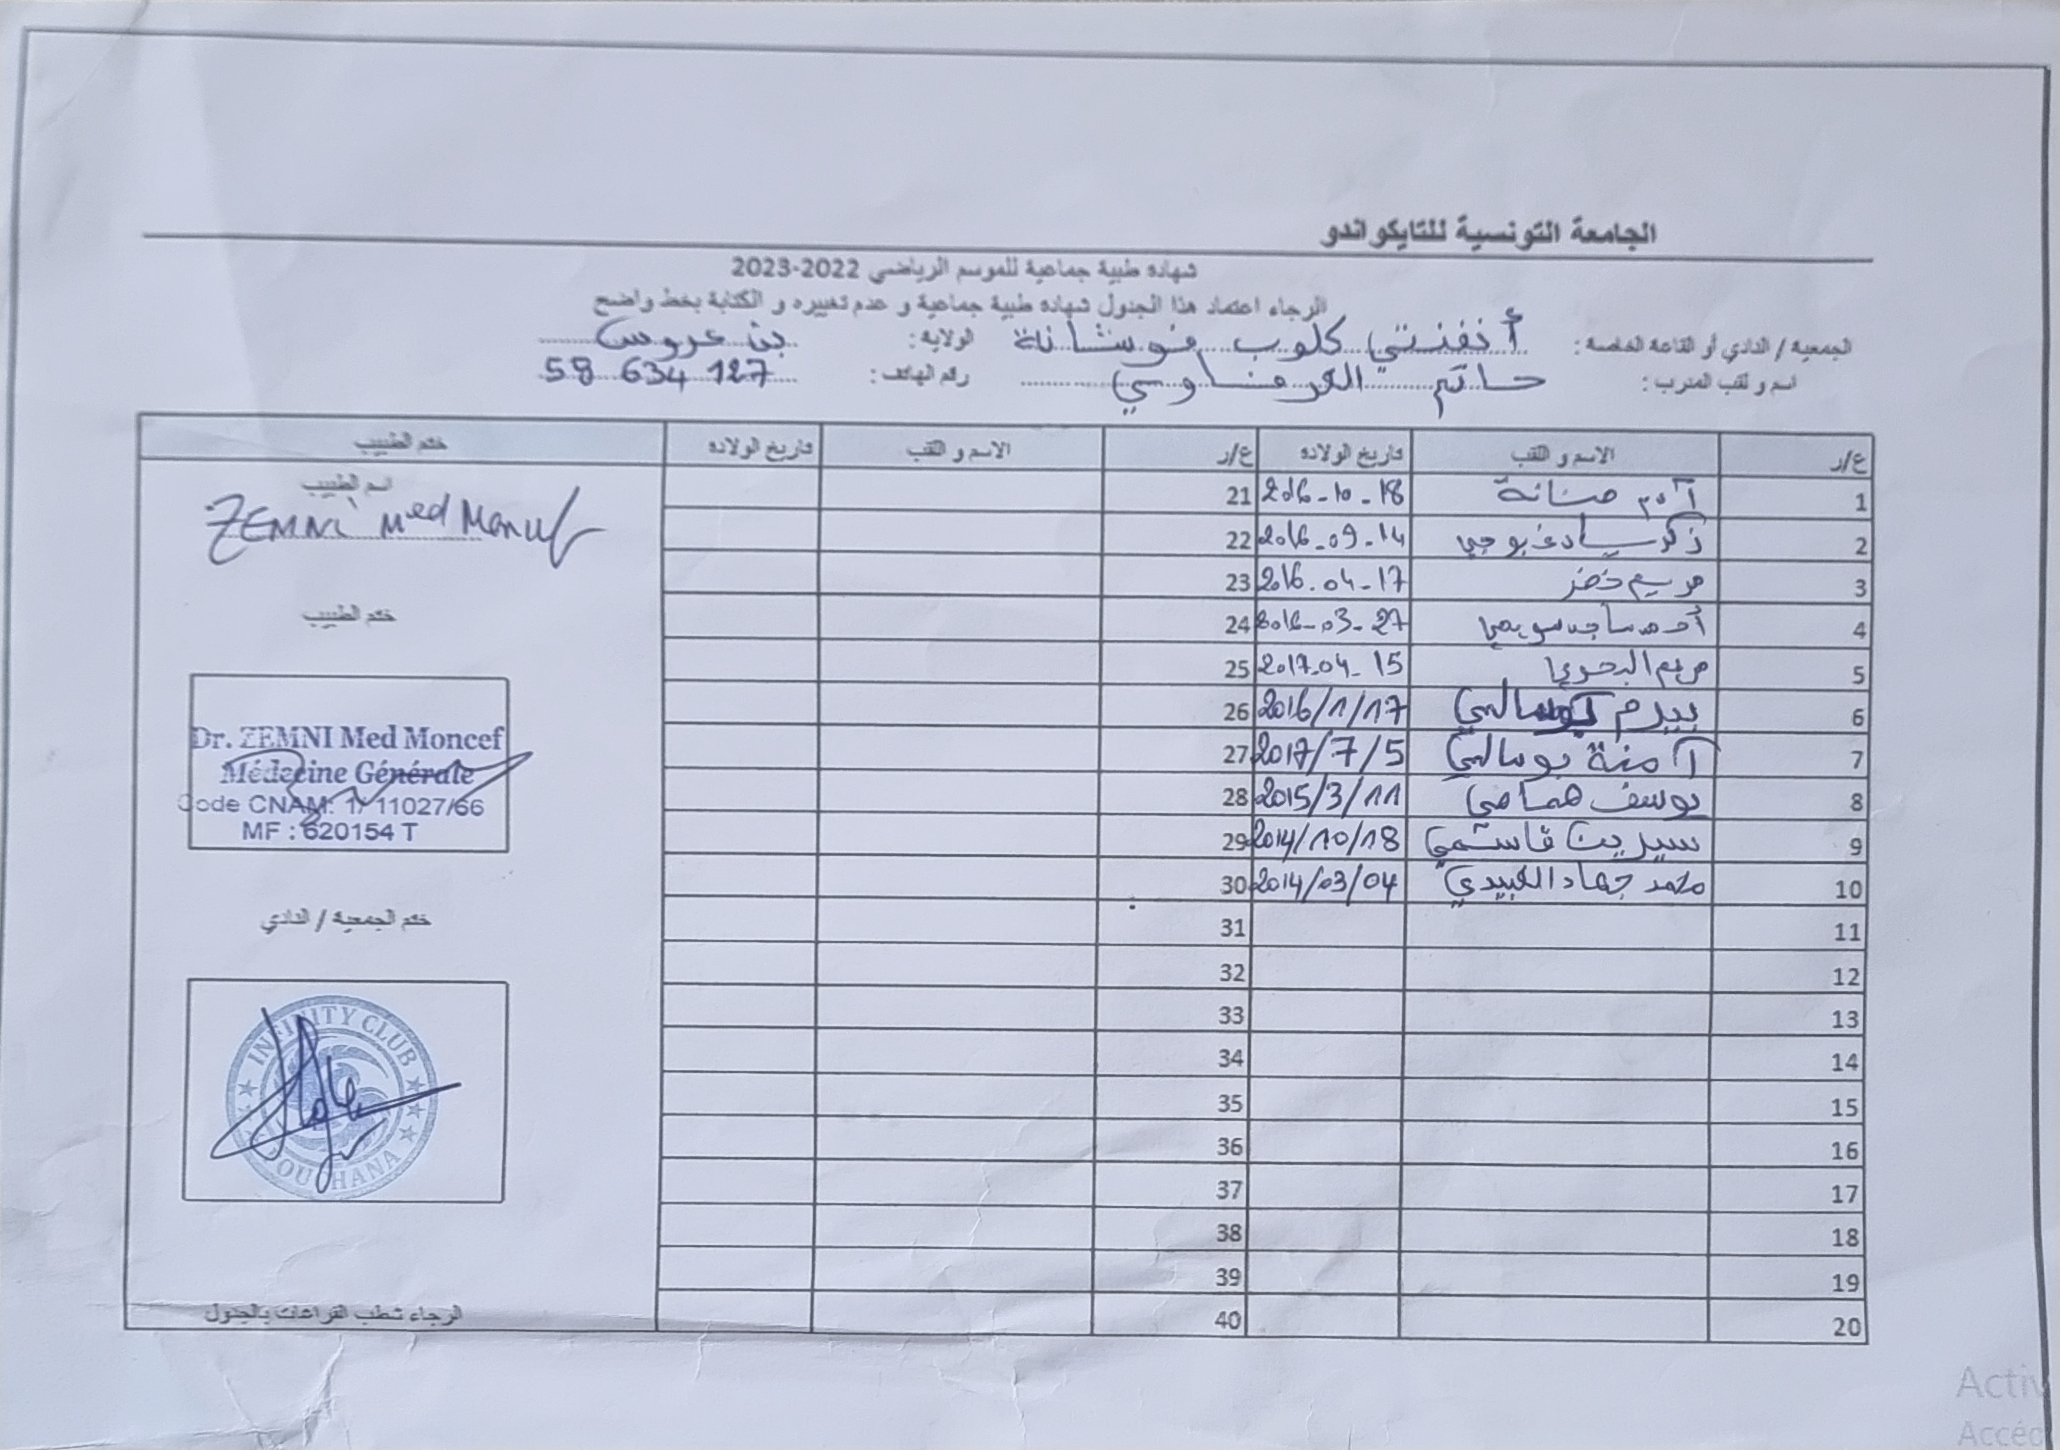 الجامعة التونسية للتايكواندو
شهادة طبية جماعية للموسم الرياضي 2022-2023
الرجاء اعتماد هذا الجدول شهادة طبية جماعية و عدم تغييره و الكتابة بخط واضح
الجمعية / النادي أو القاعة الخاصة : أنفنتي كلوب فوشانة الولاية: بن عروس
اسم و لقب المدرب : حاتم العرفاوي رقم الهاتف : 58 634 127
ع/ر الاسم و اللقب تاريخ الولادة ع/ر الاسم و اللقب تاريخ الولادة ختم الطبيب
1 آدم 2016-10-18 21
2 زكرياء 2016-09-14 22
3 مريم خضر 2016.04-17 23
4 أحمد ساجد سويسي 2016-03-27 24
5 مريم البحوري 2017-04-15 25
6 بيرم بوسالمي 2016/1/17 26
7 آمنة بوسالمي 2017/7/5 27
8 يوسف همامي 2015/3/11 28
9 سيرين قاسمي 2014/10/18 29
10 محمد جهاد العبيدي 2014/03/04 30
11 31
12 32
13 33
14 34
15 35
16 36
17 37
18 38
19 39
20 40
اسم الطبيب
ZEMNI Med Moncef
ختم الطبيب
Dr. ZEMNI Med Moncef
Médecine Générale
Code CNAM: 1/ 11027/66
MF : 620154 T
ختم الجمعية / النادي
INFINITY CLUB
FOUCHANA
الرجاء شطب الفراغات بالجدول
Activ
Accéd